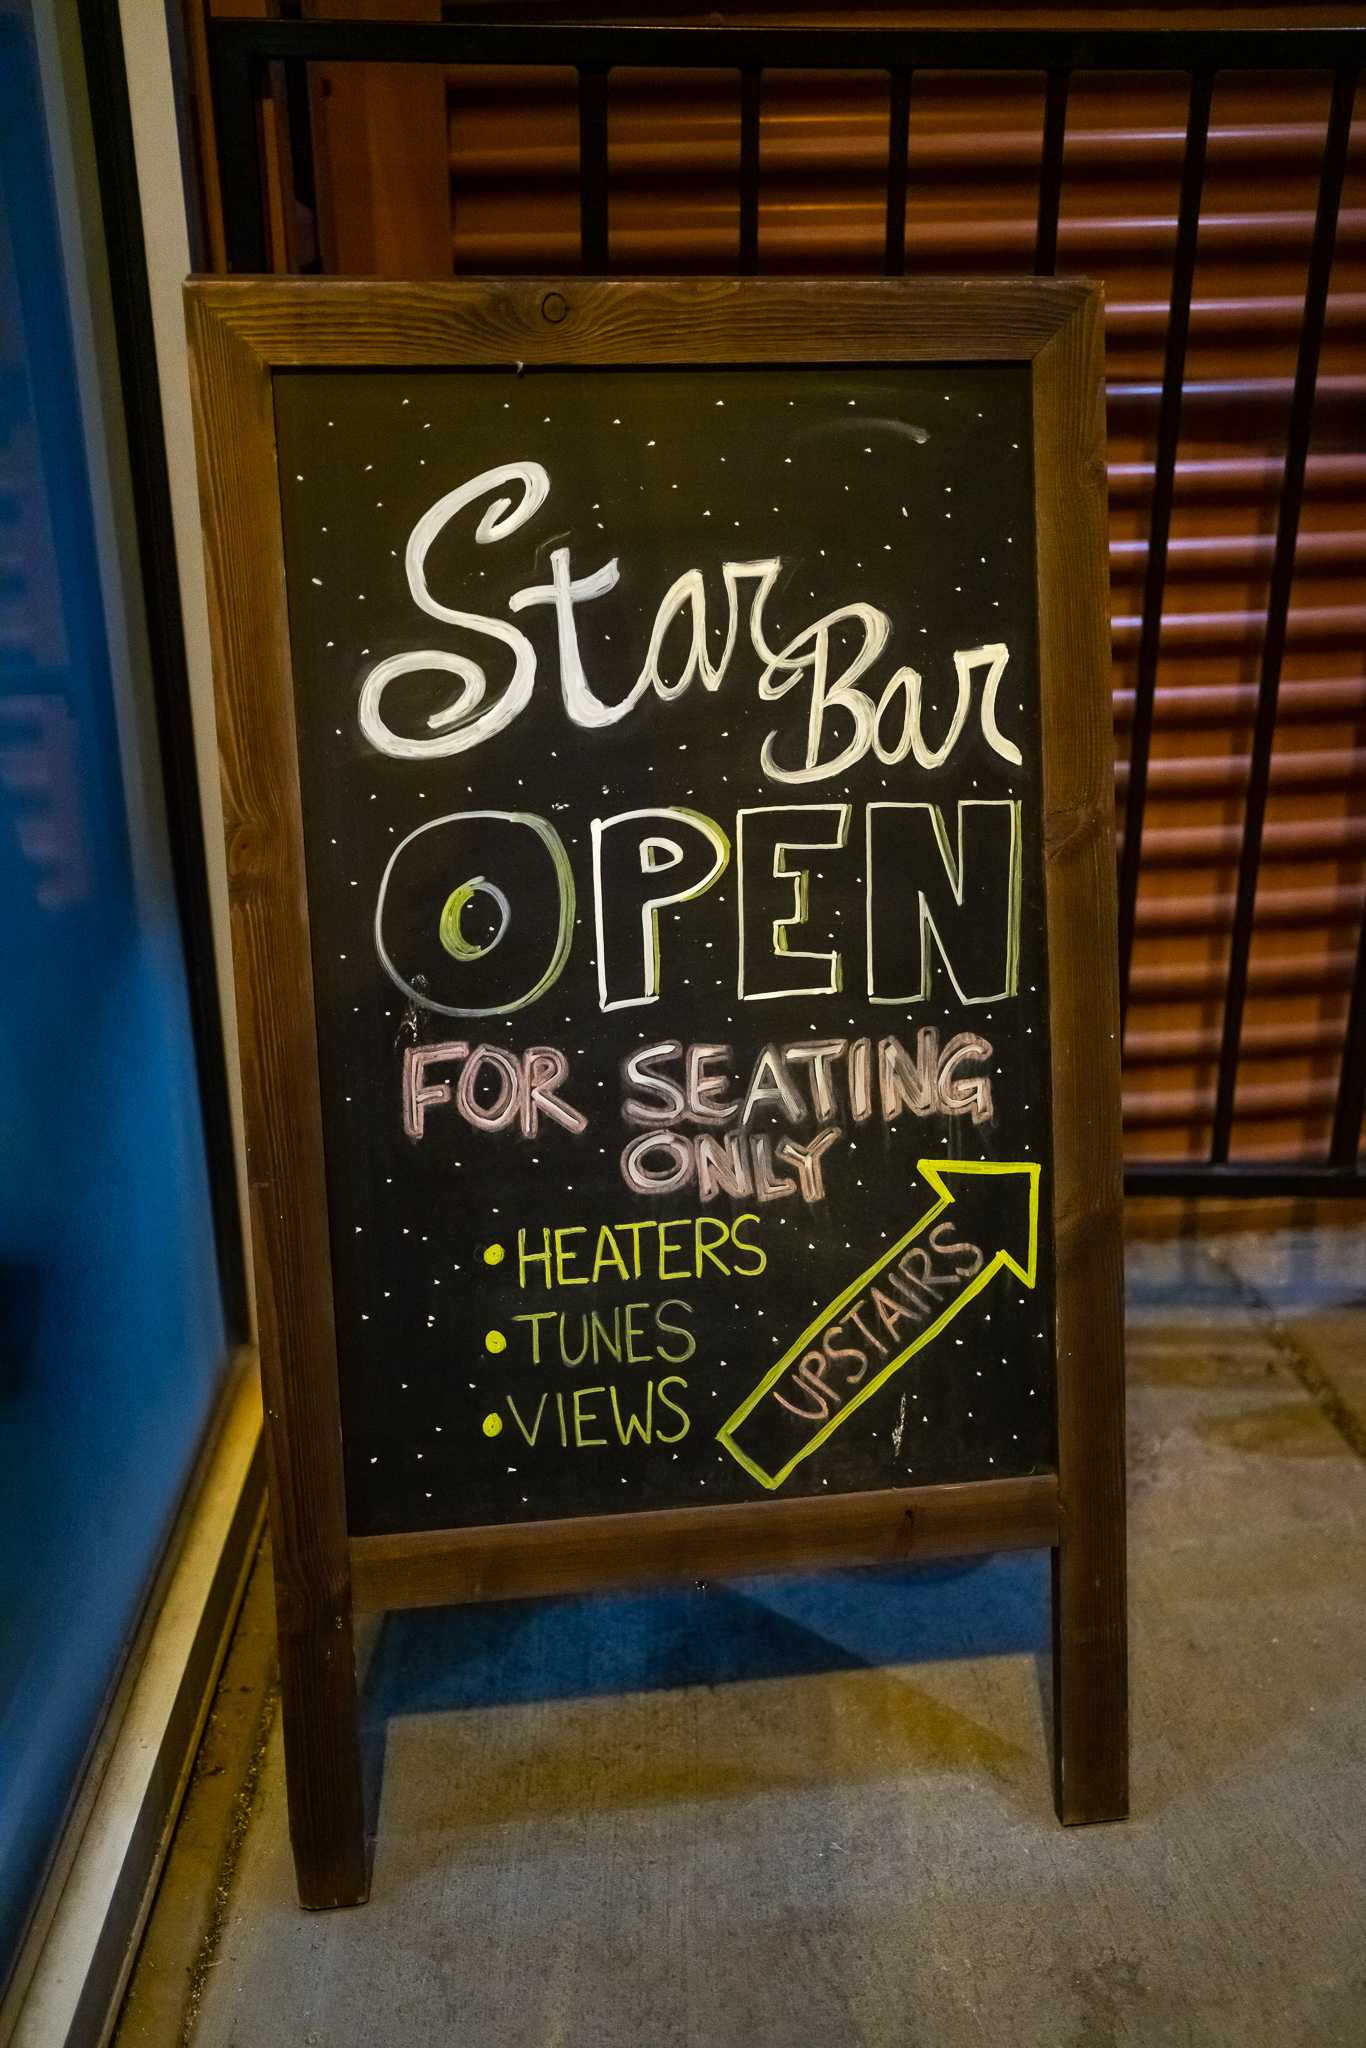 Star Bar
OPEN
FOR SEATING
ONLY
• HEATERS
• TUNES
• VIEWS
UPSTAIRS